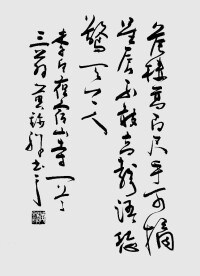 危楼高百尺手可摘
星辰不敢高声语恐
惊天上人
李白夜宿山寺一首